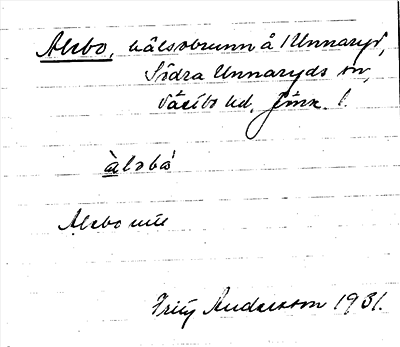 Alebo, hälsobrunn å Unnaryd,
Södra Unnaryds sn,
Västbo hd. Jönk. l.
àlabó
Alebo
Fritz Andersson 1931.